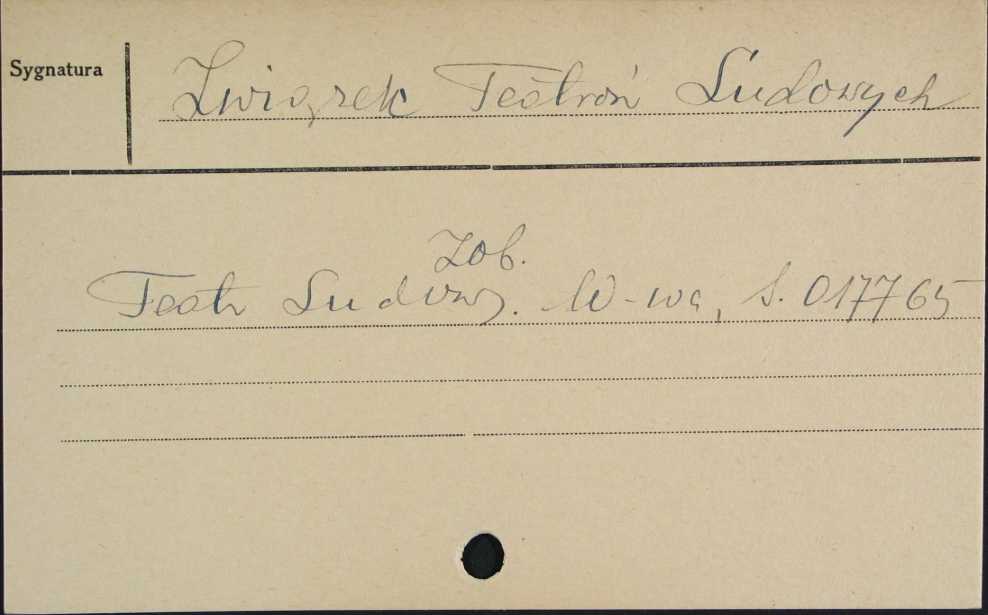 Sygnatura
Związek Teatrów Ludowych
Zob.
Teatr Ludowy. W-wa, S. 017765